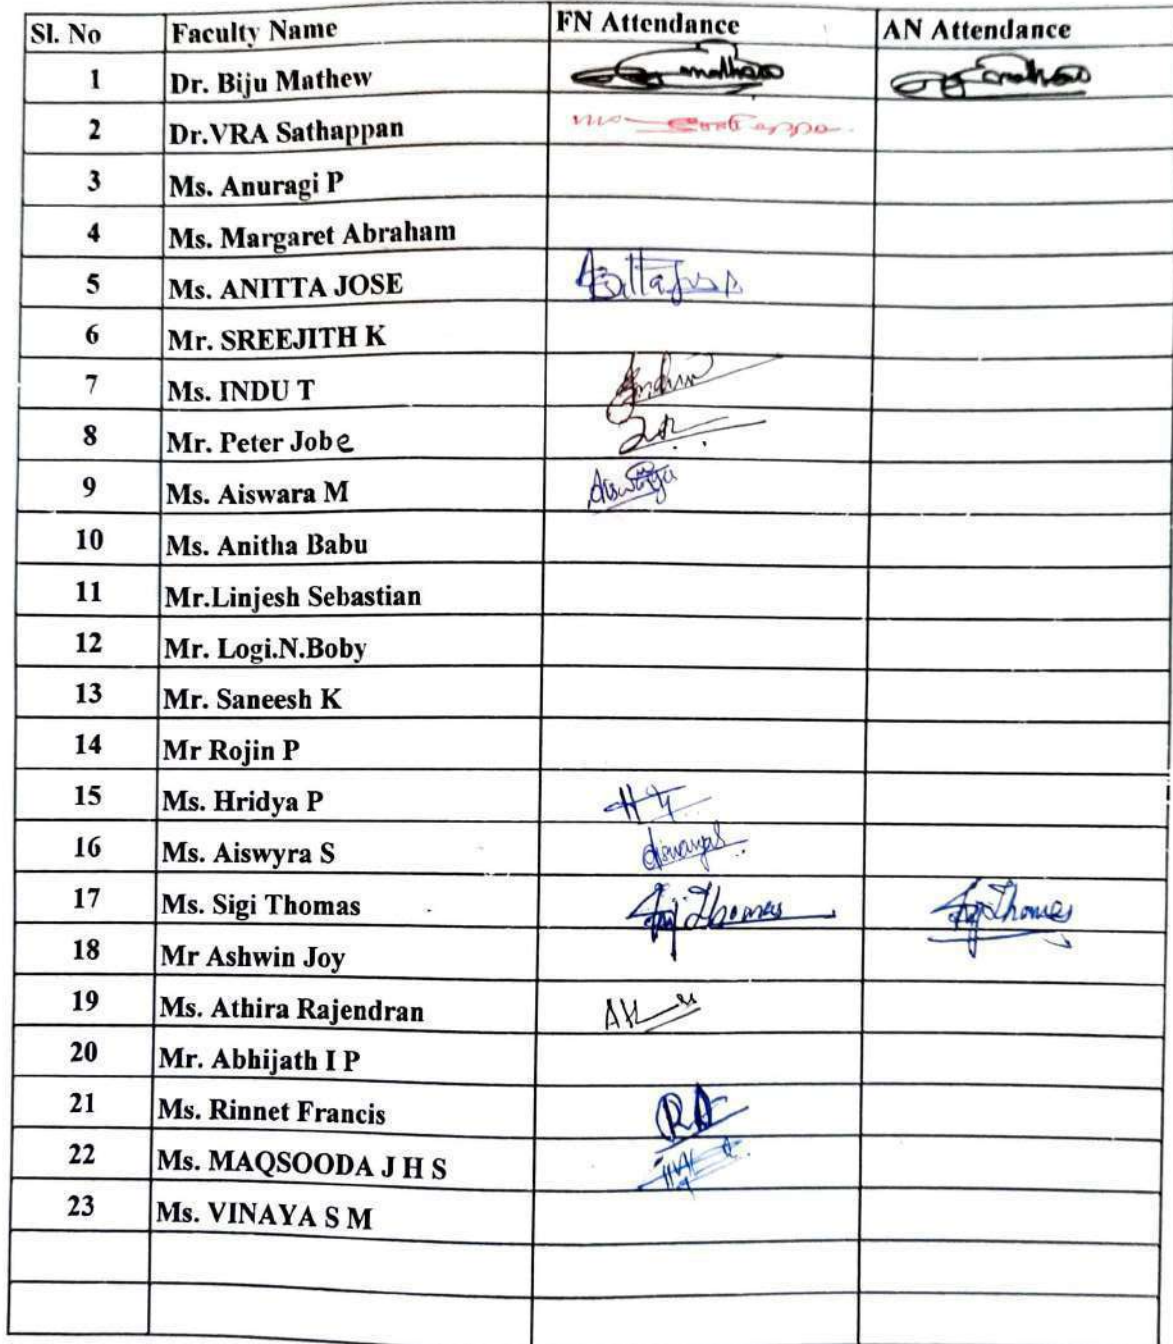 Sl. No Faculty Name FN Attendance AN Attendance
1 Dr. Biju Mathew
2 Dr.VRA Sathappan
3 Ms. Anuragi P
4 Ms. Margaret Abraham
5 Ms. ANITTA JOSE
6 Mr. SREEJITH K
7 Ms. INDU T
8 Mr. Peter Jobe
9 Ms. Aiswara M
10 Ms. Anitha Babu
11 Mr.Linjesh Sebastian
12 Mr. Logi.N.Boby
13 Mr. Saneesh K
14 Mr Rojin P
15 Ms. Hridya P
16 Ms. Aiswyra S
17 Ms. Sigi Thomas Thomas Thomas
18 Mr Ashwin Joy
19 Ms. Athira Rajendran
20 Mr. Abhijath I P
21 Ms. Rinnet Francis
22 Ms. MAQSOODA J H S
23 Ms. VINAYA S M